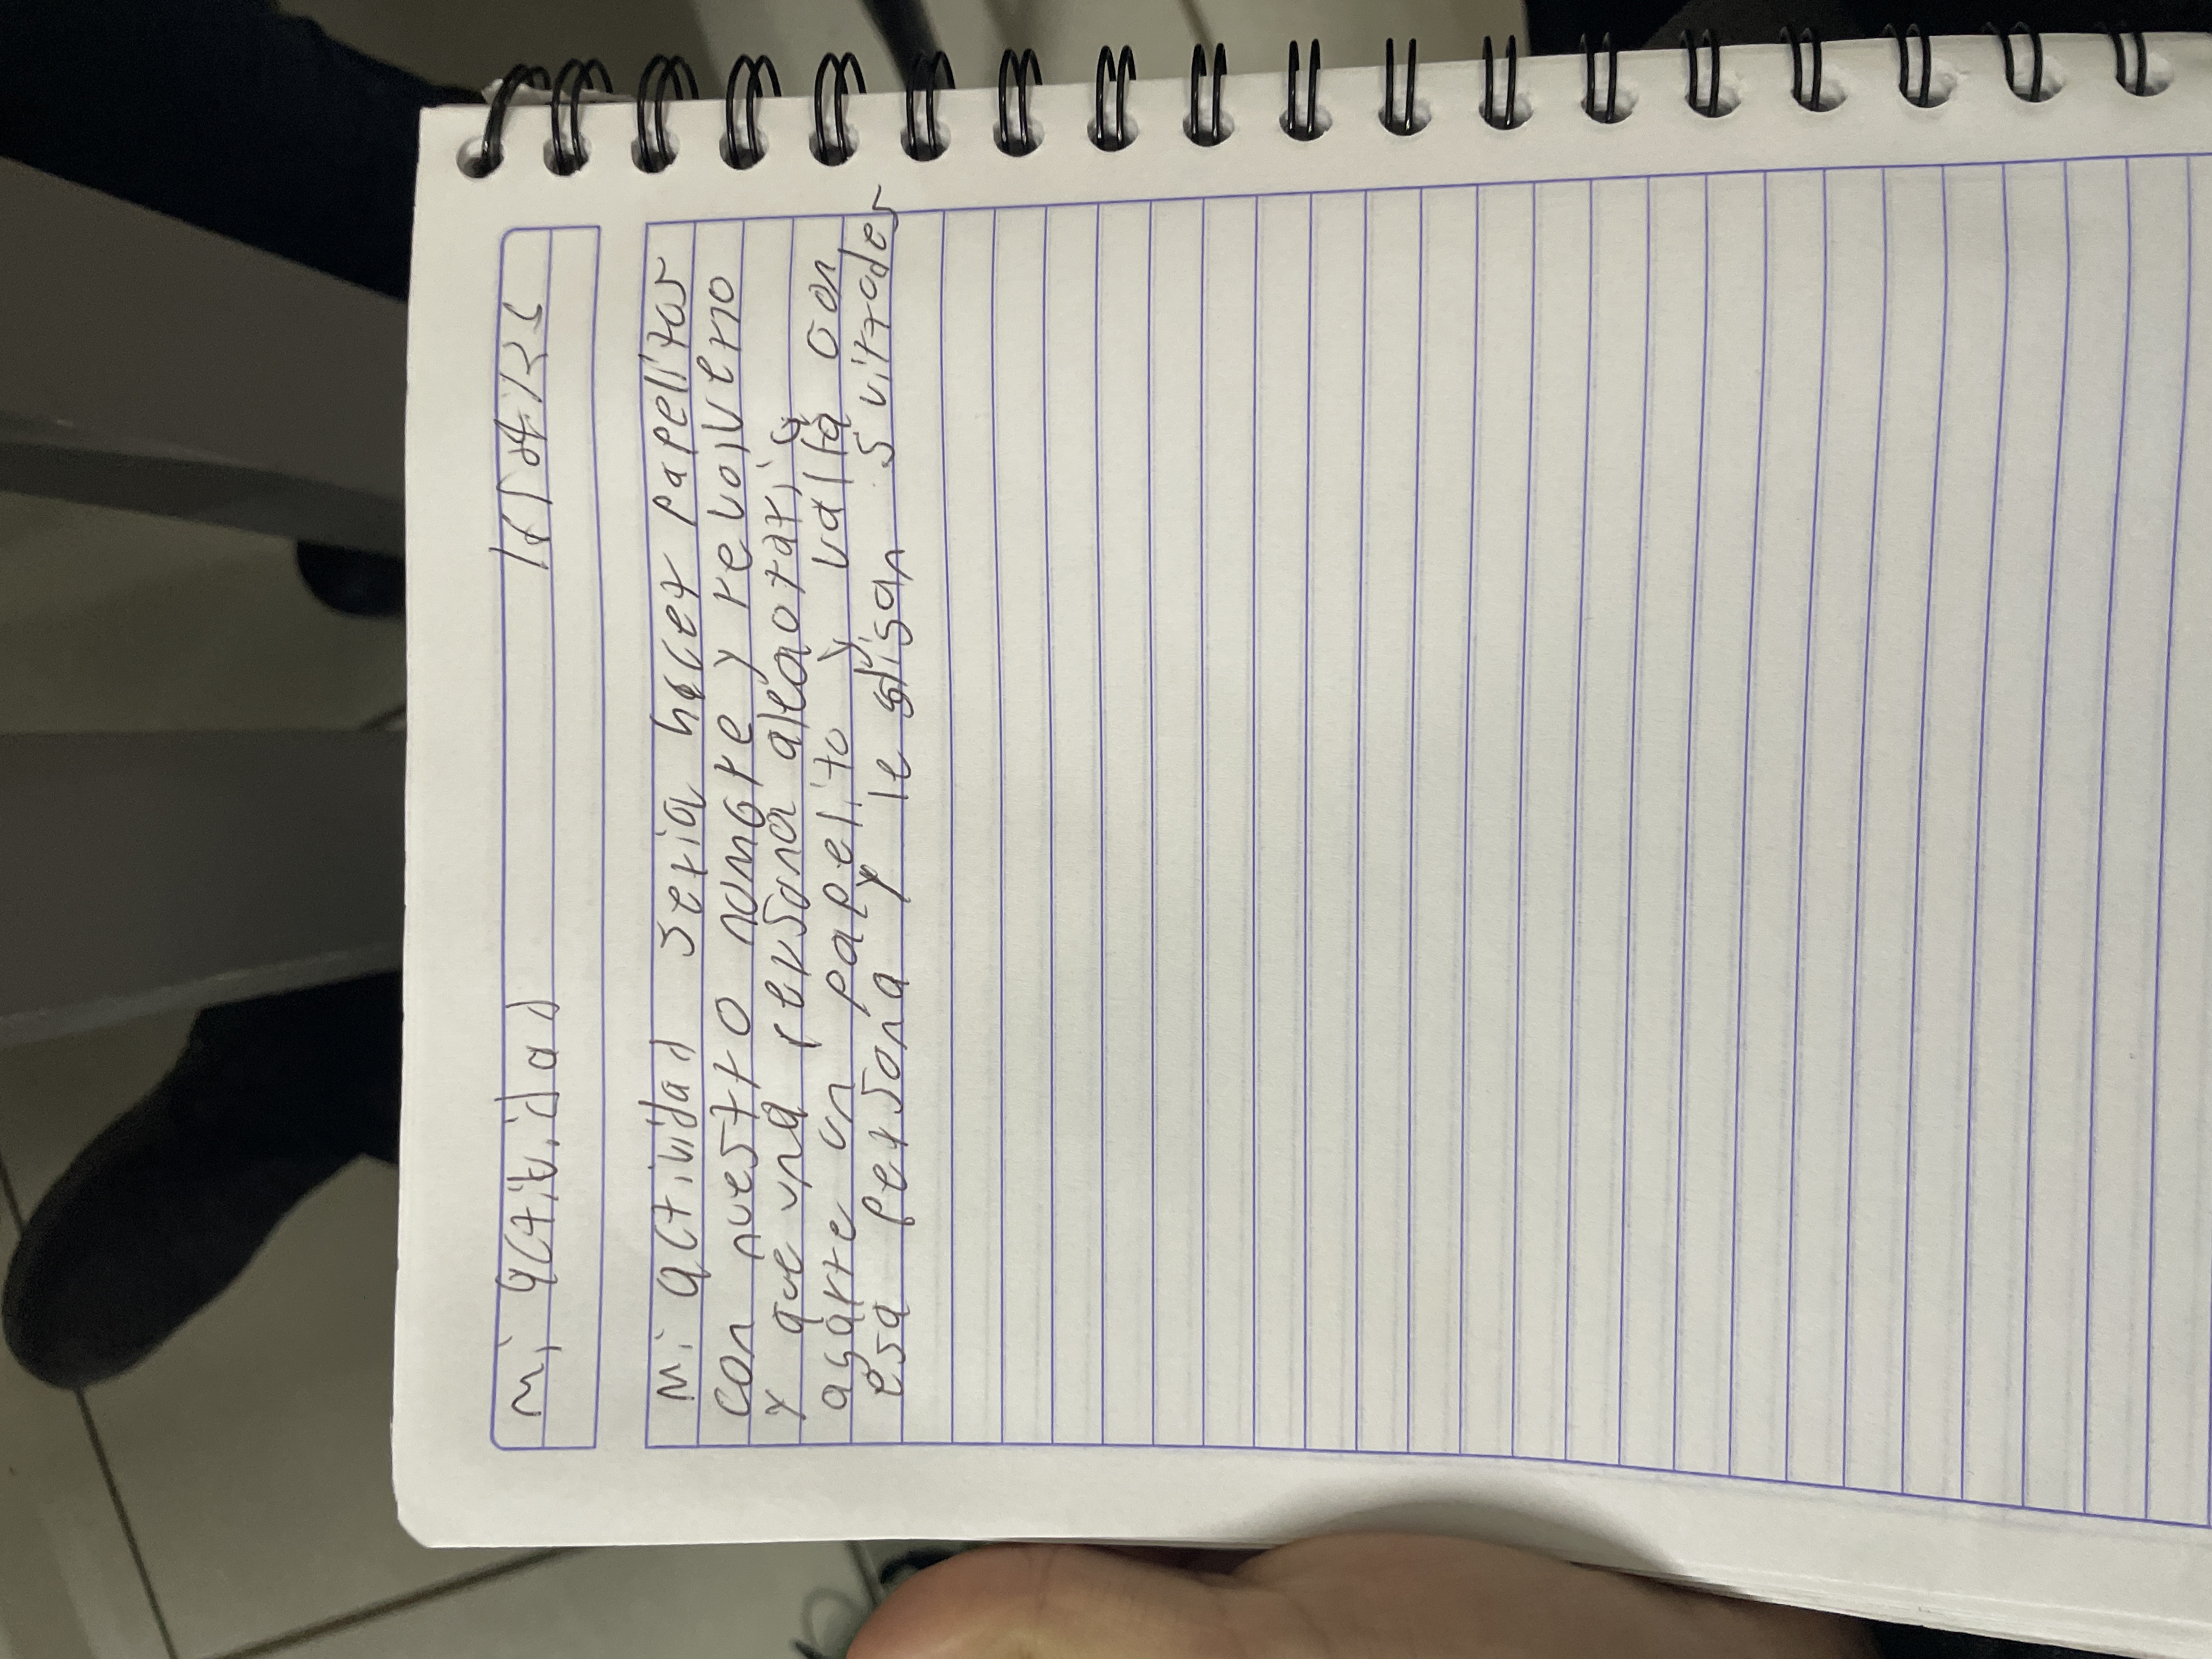 mi actividad
Mi actividad seria hacer papelitos
con nuestro nombre y revolverno
y que una persona aleaotaria
agarre un papelito y valla con
esa persona y le disan 5 virtudes